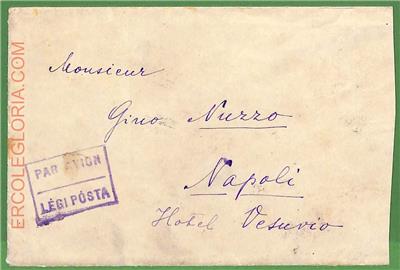 ERCOLEGLORIA.COM
Monsieur
Gino Nuzzo
Napoli
Hotel Vesuvio
PAR AVION
LÉGI PÓSTA